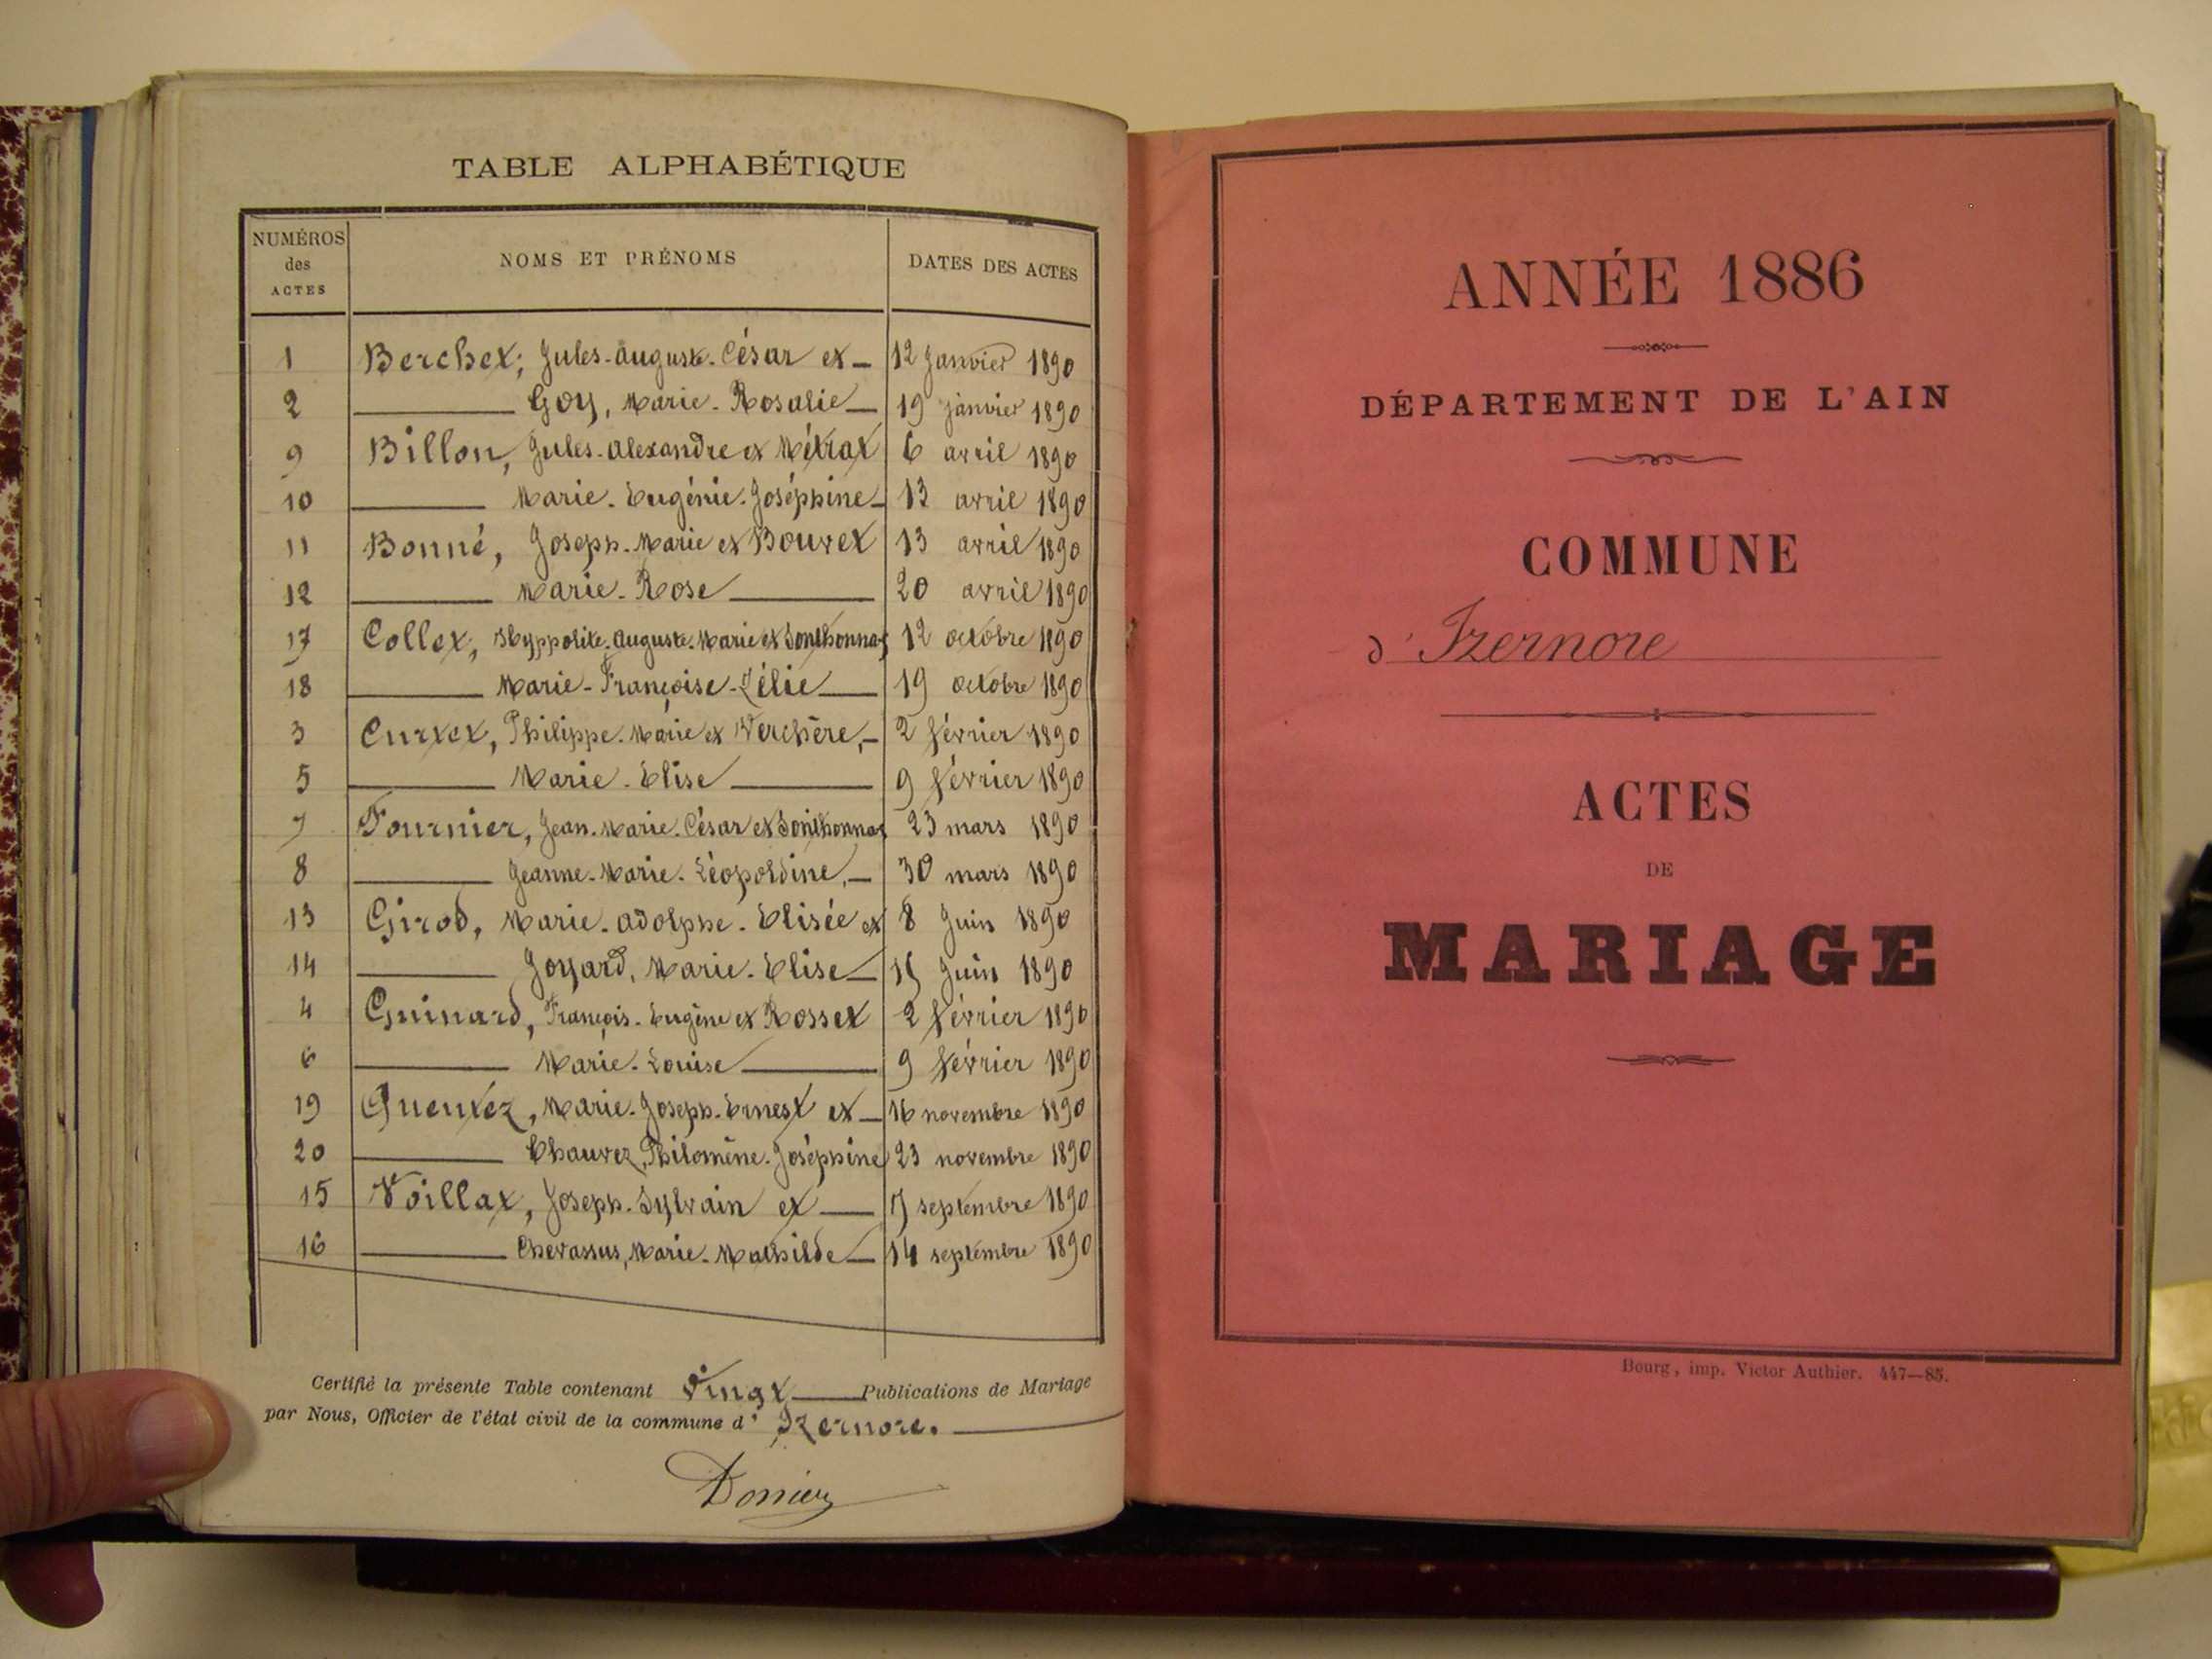 TABLE ALPHABÉTIQUE
NUMÉROS des ACTES NOMS ET PRÉNOMS DATES DES ACTES
1 Berchet, Jules-Auguste-César et 12 Janvier 1890
2 Goy, Marie-Rosalie 19 janvier 1890
9 Billon, Jules-Alexandre et Métrat 6 avril 1890
10 Marie-Eugénie-Joséphine 13 avril 1890
11 Bonné, Joseph-Marie et Bouvet 13 avril 1890
12 Marie-Rose 20 avril 1890
17 Collet, Hyppolite-Auguste-Marie et Sonthonnax 12 octobre 1890
18 Marie-Françoise-Zélie 19 octobre 1890
3 Curtet, Philippe-Marie et Verchère, 2 février 1890
5 Marie-Elise 9 février 1890
7 Fournier, Jean-Marie-César et Sonthonnax 23 mars 1890
8 Jeanne-Marie-Léopoldine, 30 mars 1890
13 Girod, Marie-Adolphe-Elisée et 8 Juin 1890
14 Goyard, Marie-Elise 15 Juin 1890
4 Guinard, François-Eugène et Rosset 2 février 1890
6 Marie-Louise 9 février 1890
19 Gueutéz, Marie-Joseph-Ernest et 16 novembre 1890
20 Chauvez, Philomène-Joséphine 23 novembre 1890
15 Voillat, Joseph-Sylvain et 7 septembre 1890
16 Chevassus, Marie-Mathilde 14 septembre 1890
Certifié la présente Table contenant Vingt Publications de Mariage
par Nous, Officier de l'état civil de la commune d' Izernore.
ANNÉE 1886
DÉPARTEMENT DE L'AIN
COMMUNE
d'Izernore
ACTES
DE
MARIAGE
Bourg, imp. Victor Authier. 447—85.